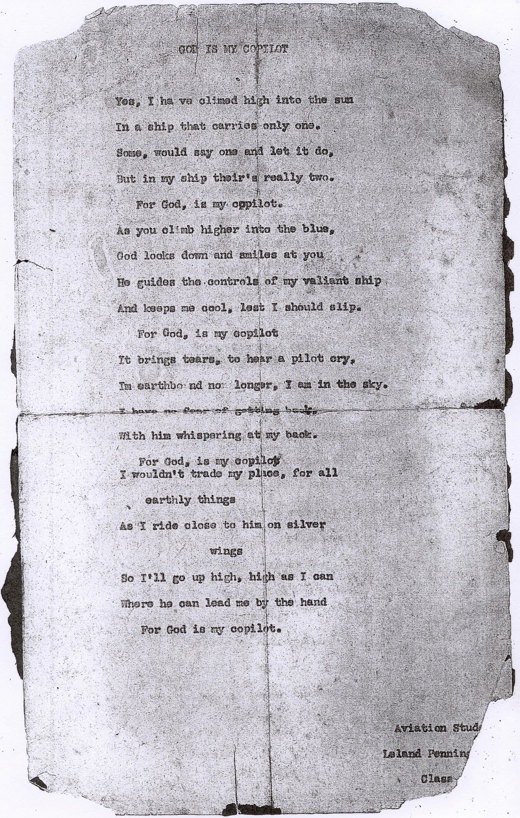 GOD IS MY COPILOT
Yes, I ha ve climed high into the sun
In a ship that carries only one.
Some, would say one and let it do,
But in my ship their's really two.
For God, is my copilot.
As you climb higher into the blue,
God looks down and smiles at you
He guides the controls of my valiant ship
And keeps me cool, lest I should slip.
For God, is my copilot
It brings tears, to hear a pilot cry,
Im earthbo nd no longer, I am in the sky.
I have no fear of getting back,
With him whispering at my back.
For God, is my copilot
I wouldn't trade my place, for all
earthly things
As I ride close to him on silver
wings
So I'll go up high, high as I can
Where he can lead me by the hand
For God is my copilot.
Aviation Stud
Leland Penning
Class